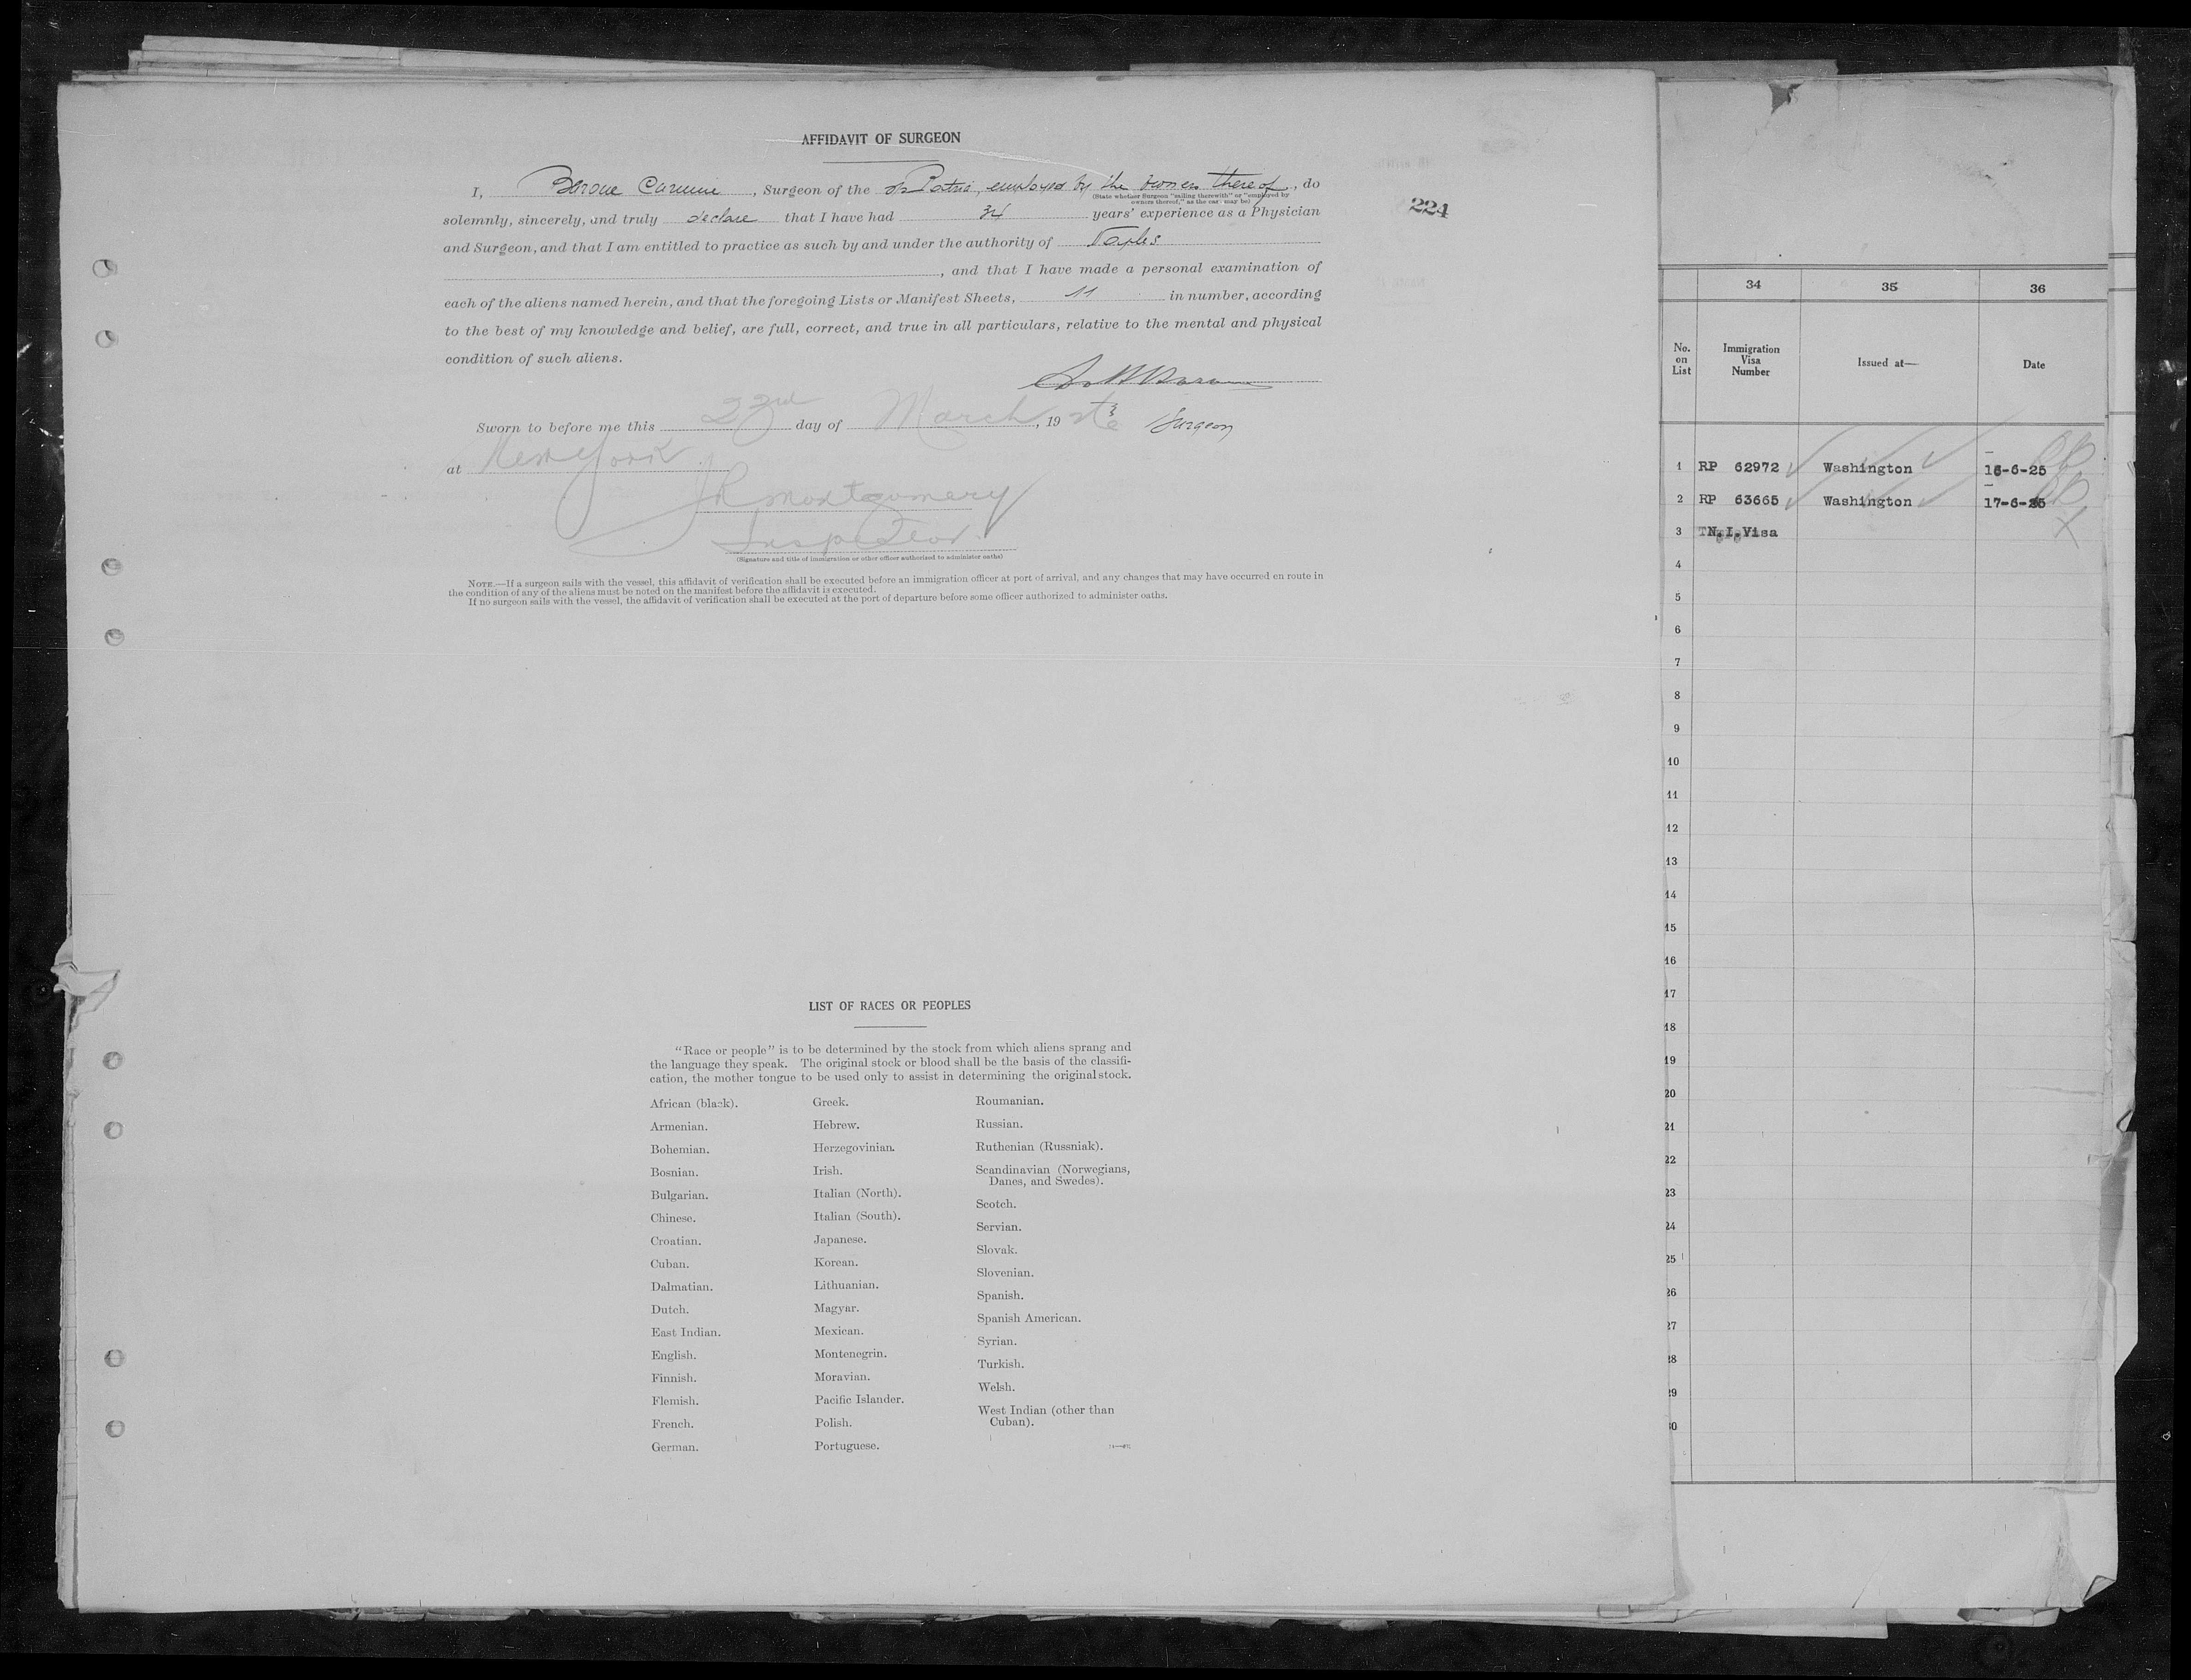 AFFIDAVIT OF SURGEON
I, Barone Carmine, Surgeon of the s/s Patria, employed by the owners thereof, do
(State whether Surgeon "sailing therewith" or "employed by
owners thereof," as the case may be)
224
solemnly, sincerely, and truly declare that I have had 34 years' experience as a Physician
and Surgeon, and that I am entitled to practice as such by and under the authority of Naples
, and that I have made a personal examination of
each of the aliens named herein, and that the foregoing Lists or Manifest Sheets, 11 in number, according
to the best of my knowledge and belief, are full, correct, and true in all particulars, relative to the mental and physical
condition of such aliens.
Sworn to before me this 23rd day of March, 19
Surgeon
at New York
JR Montgomery
Inspector
(Signature and title of immigration or other officer authorized to administer oaths)
NOTE.—If a surgeon sails with the vessel, this affidavit of verification shall be executed before an immigration officer at port of arrival, and any changes that may have occurred en route in
the condition of any of the aliens must be noted on the manifest before the affidavit is executed.
If no surgeon sails with the vessel, the affidavit of verification shall be executed at the port of departure before some officer authorized to administer oaths.
LIST OF RACES OR PEOPLES
"Race or people" is to be determined by the stock from which aliens sprang and
the language they speak. The original stock or blood shall be the basis of the classifi-
cation, the mother tongue to be used only to assist in determining the original stock.
African (black).
Armenian.
Bohemian.
Bosnian.
Bulgarian.
Chinese.
Croatian.
Cuban.
Dalmatian.
Dutch.
East Indian.
English.
Finnish.
Flemish.
French.
German.
Greek.
Hebrew.
Herzegovinian.
Irish.
Italian (North).
Italian (South).
Japanese.
Korean.
Lithuanian.
Magyar.
Mexican.
Montenegrin.
Moravian.
Pacific Islander.
Polish.
Portuguese.
Roumanian.
Russian.
Ruthenian (Russniak).
Scandinavian (Norwegians,
Danes, and Swedes).
Scotch.
Servian.
Slovak.
Slovenian.
Spanish.
Spanish American.
Syrian.
Turkish.
Welsh.
West Indian (other than
Cuban).
34 35 36
No.
on
List
Immigration
Visa
Number
Issued at—
Date
1 RP 62972 Washington 16-6-25
2 RP 63665 Washington 17-6-25
3 N.I.Visa
4
5
6
7
8
9
10
11
12
13
14
15
16
17
18
19
20
21
22
23
24
25
26
27
28
29
30